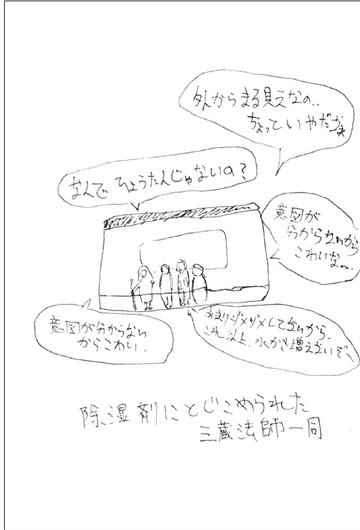 外からまる見えなの..
ちょっといやだなぁ
なんで、ひょうたんじゃないの?
意図が
分からないから
こわいな...
意図が分からない
からこわい.
あまりジメジメしてないから、
これ以上、水が増えないぞ
除湿剤にとじこめられた
三蔵法師一同